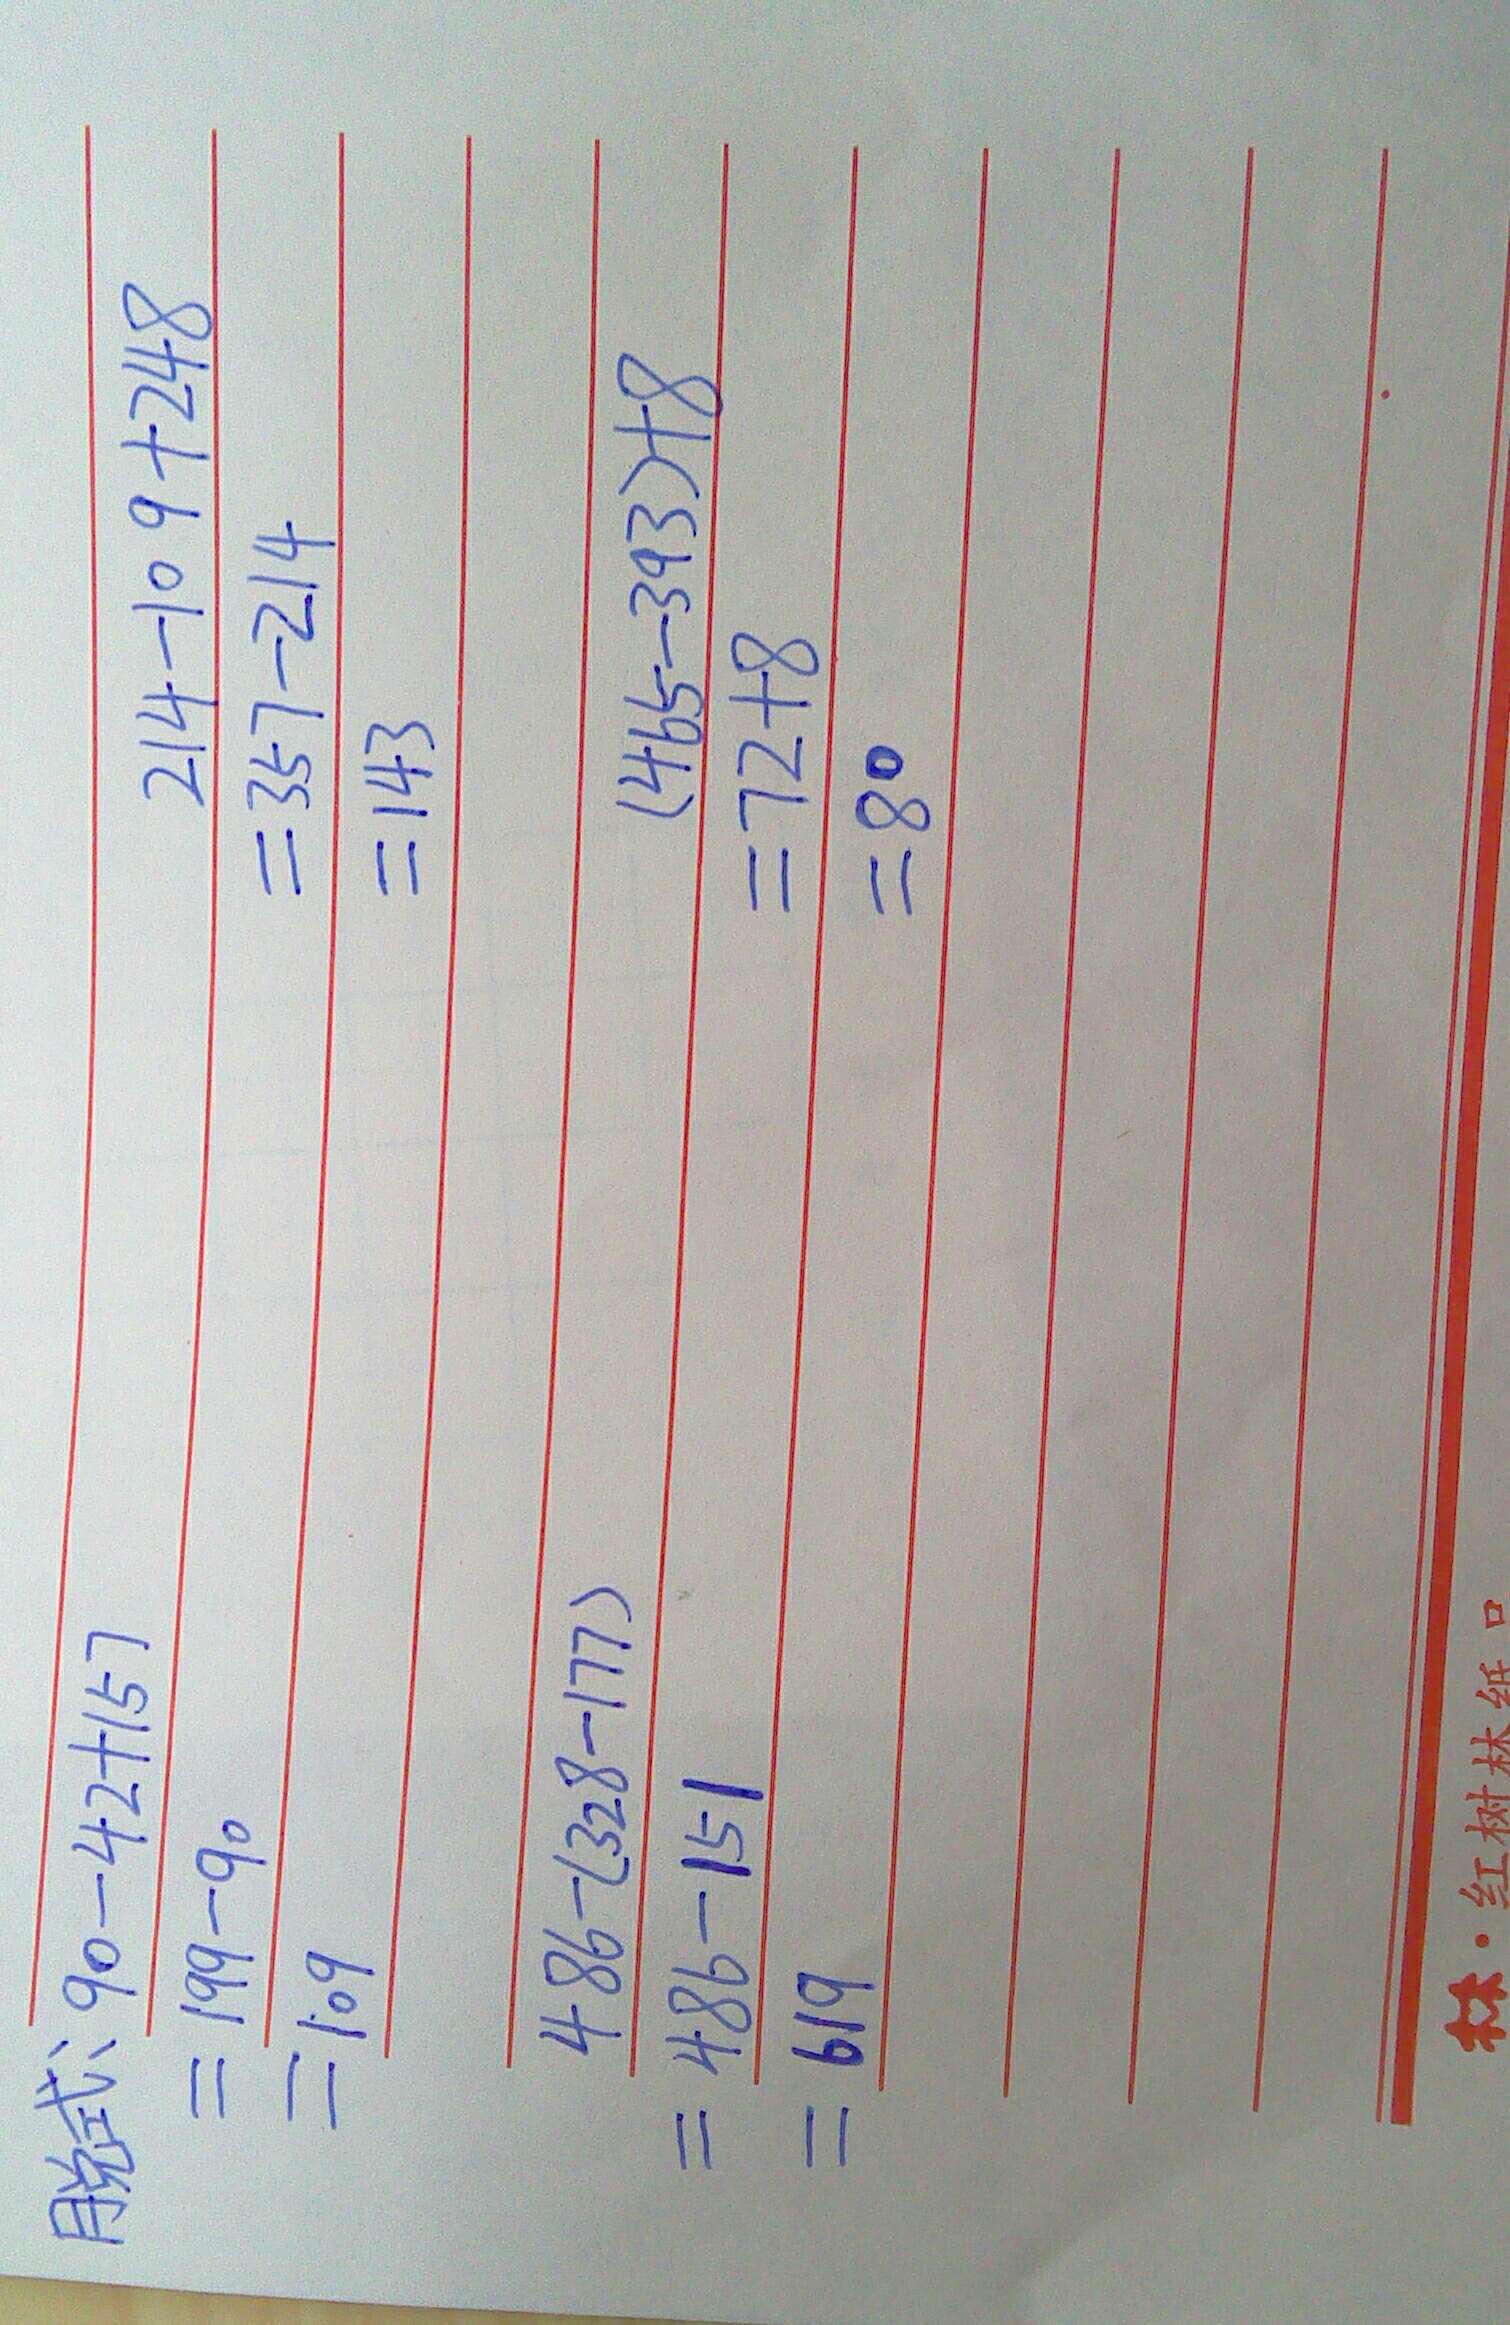 脱式: 90-42+157
=199-90
=109
214-109+248
=357-214
=143
486-(328-177)
=486-151
=619
(465-393)+8
=72+8
=80
林·红树林纸